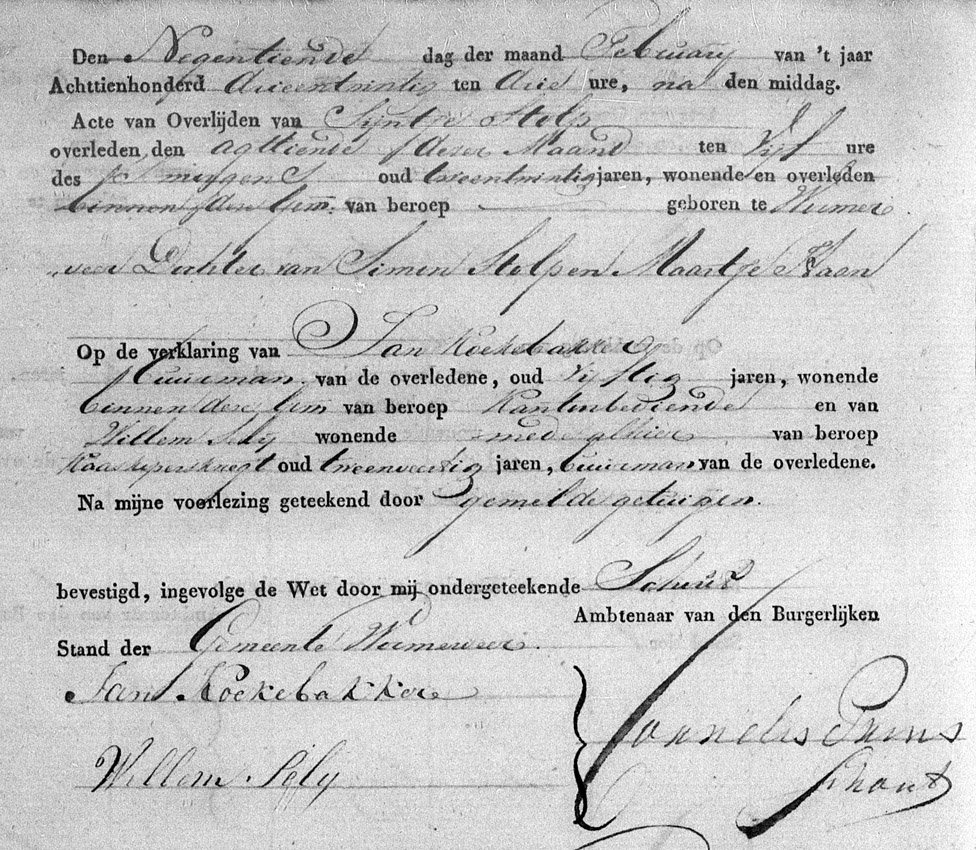 Den Negentiende dag der maand February van 't jaar
Achttienhonderd drieentwintig ten drie ure, na den middag.
Acte van Overlijden van Sijntje Stolp
overleden den agttiende dezer Maand ten Vijf ure
des smorgens oud tweentwintig jaren, wonende en overleden
binnen deze Gem: van beroep geboren te Wormer
veer Dochter van Simen Stolp en Maartje Haan
Op de verklaring van Jan Koekebakker
buurman van de overledene, oud Vijftig jaren, wonende
binnen deze Gem van beroep Kantinbediende en van
Willem Sely wonende mede alhier van beroep
Kaaskopersknegt oud tweenveertig jaren, buurman van de overledene.
Na mijne voorlezing geteekend door gemelde getuigen.
bevestigd, ingevolge de Wet door mij ondergeteekende Schout
Ambtenaar van den Burgerlijken
Stand der Gemeente Wormerveer.
Jan Koekebakker
Willem Sely
Cornelis Prins
Schout